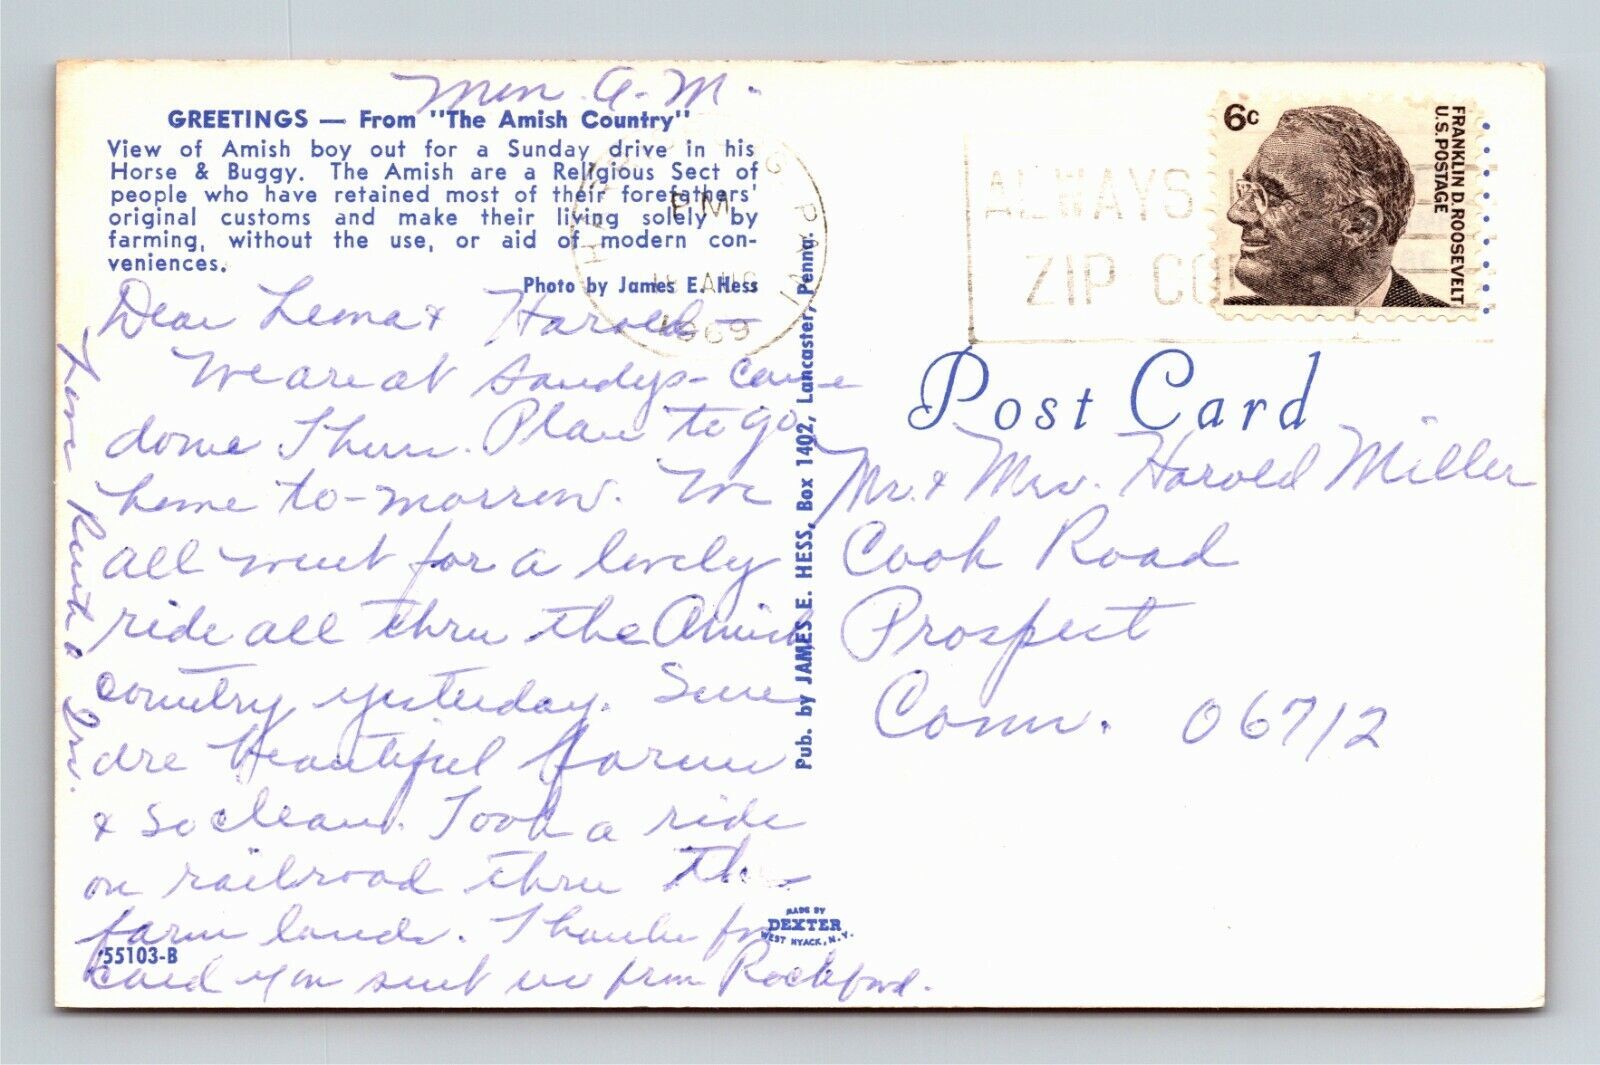 Mon. A.M.
GREETINGS — From "The Amish Country"
View of Amish boy out for a Sunday drive in his
Horse & Buggy. The Amish are a Religious Sect of
people who have retained most of their forefathers'
original customs and make their living solely by
farming, without the use, or aid of modern con-
veniences.
Photo by James E. Hess
Dear Lena & Harold—
We are at Sandys - came
down Thurs. Plan to go
home to-morrow. We
all went for a lovely
ride all thru the Amish
country yesterday. Sure
are beautiful farms
& so clean. Took a ride
on railroad thru the
farm lands. Thanks for
card you sent us from Rockford.
Love Ruth &
55103-B
Pub. by JAMES E. HESS, Box 1402, Lancaster, Penna.
MADE BY
DEXTER
WEST NYACK, N.Y.
PM
AUG
1969
ALWAYS
ZIP CO
6c
FRANKLIN D. ROOSEVELT
U.S. POSTAGE
Post Card
Mr. & Mrs. Harold Miller
Cook Road
Prospect
Conn. 06712